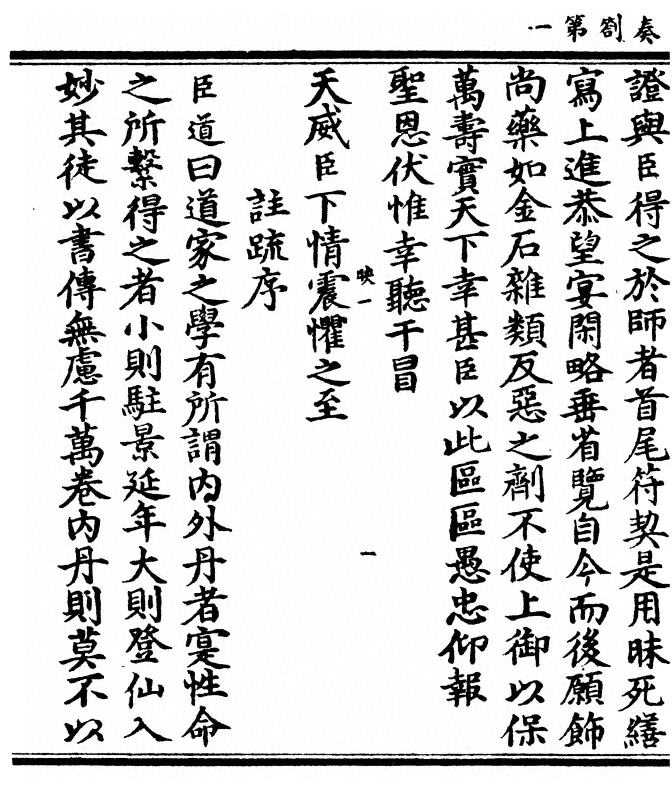 奏劄第一
證與臣得之於師者首尾符契是用昧死繕
寫上進恭望宴閑略垂省覽自今而後願飾
尚藥如金石雜類反惡之劑不使上御以保
萬壽實天下幸甚臣以此區區愚忠仰報
聖恩伏惟幸聽干冒
映一
一
天威臣下情震懼之至
註䟽序
臣道曰道家之學有所謂内外丹者寔性命
之所繫得之者小則駐景延年大則登仙入
妙其徒以書傳無慮千萬卷内丹則莫不以